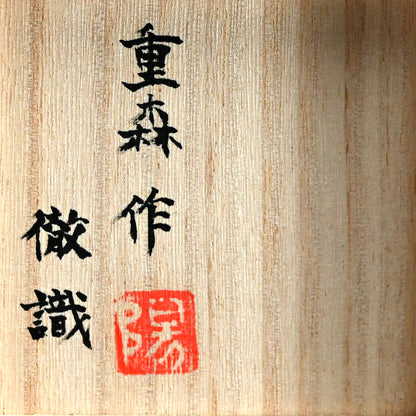 重森作
陽
徹識